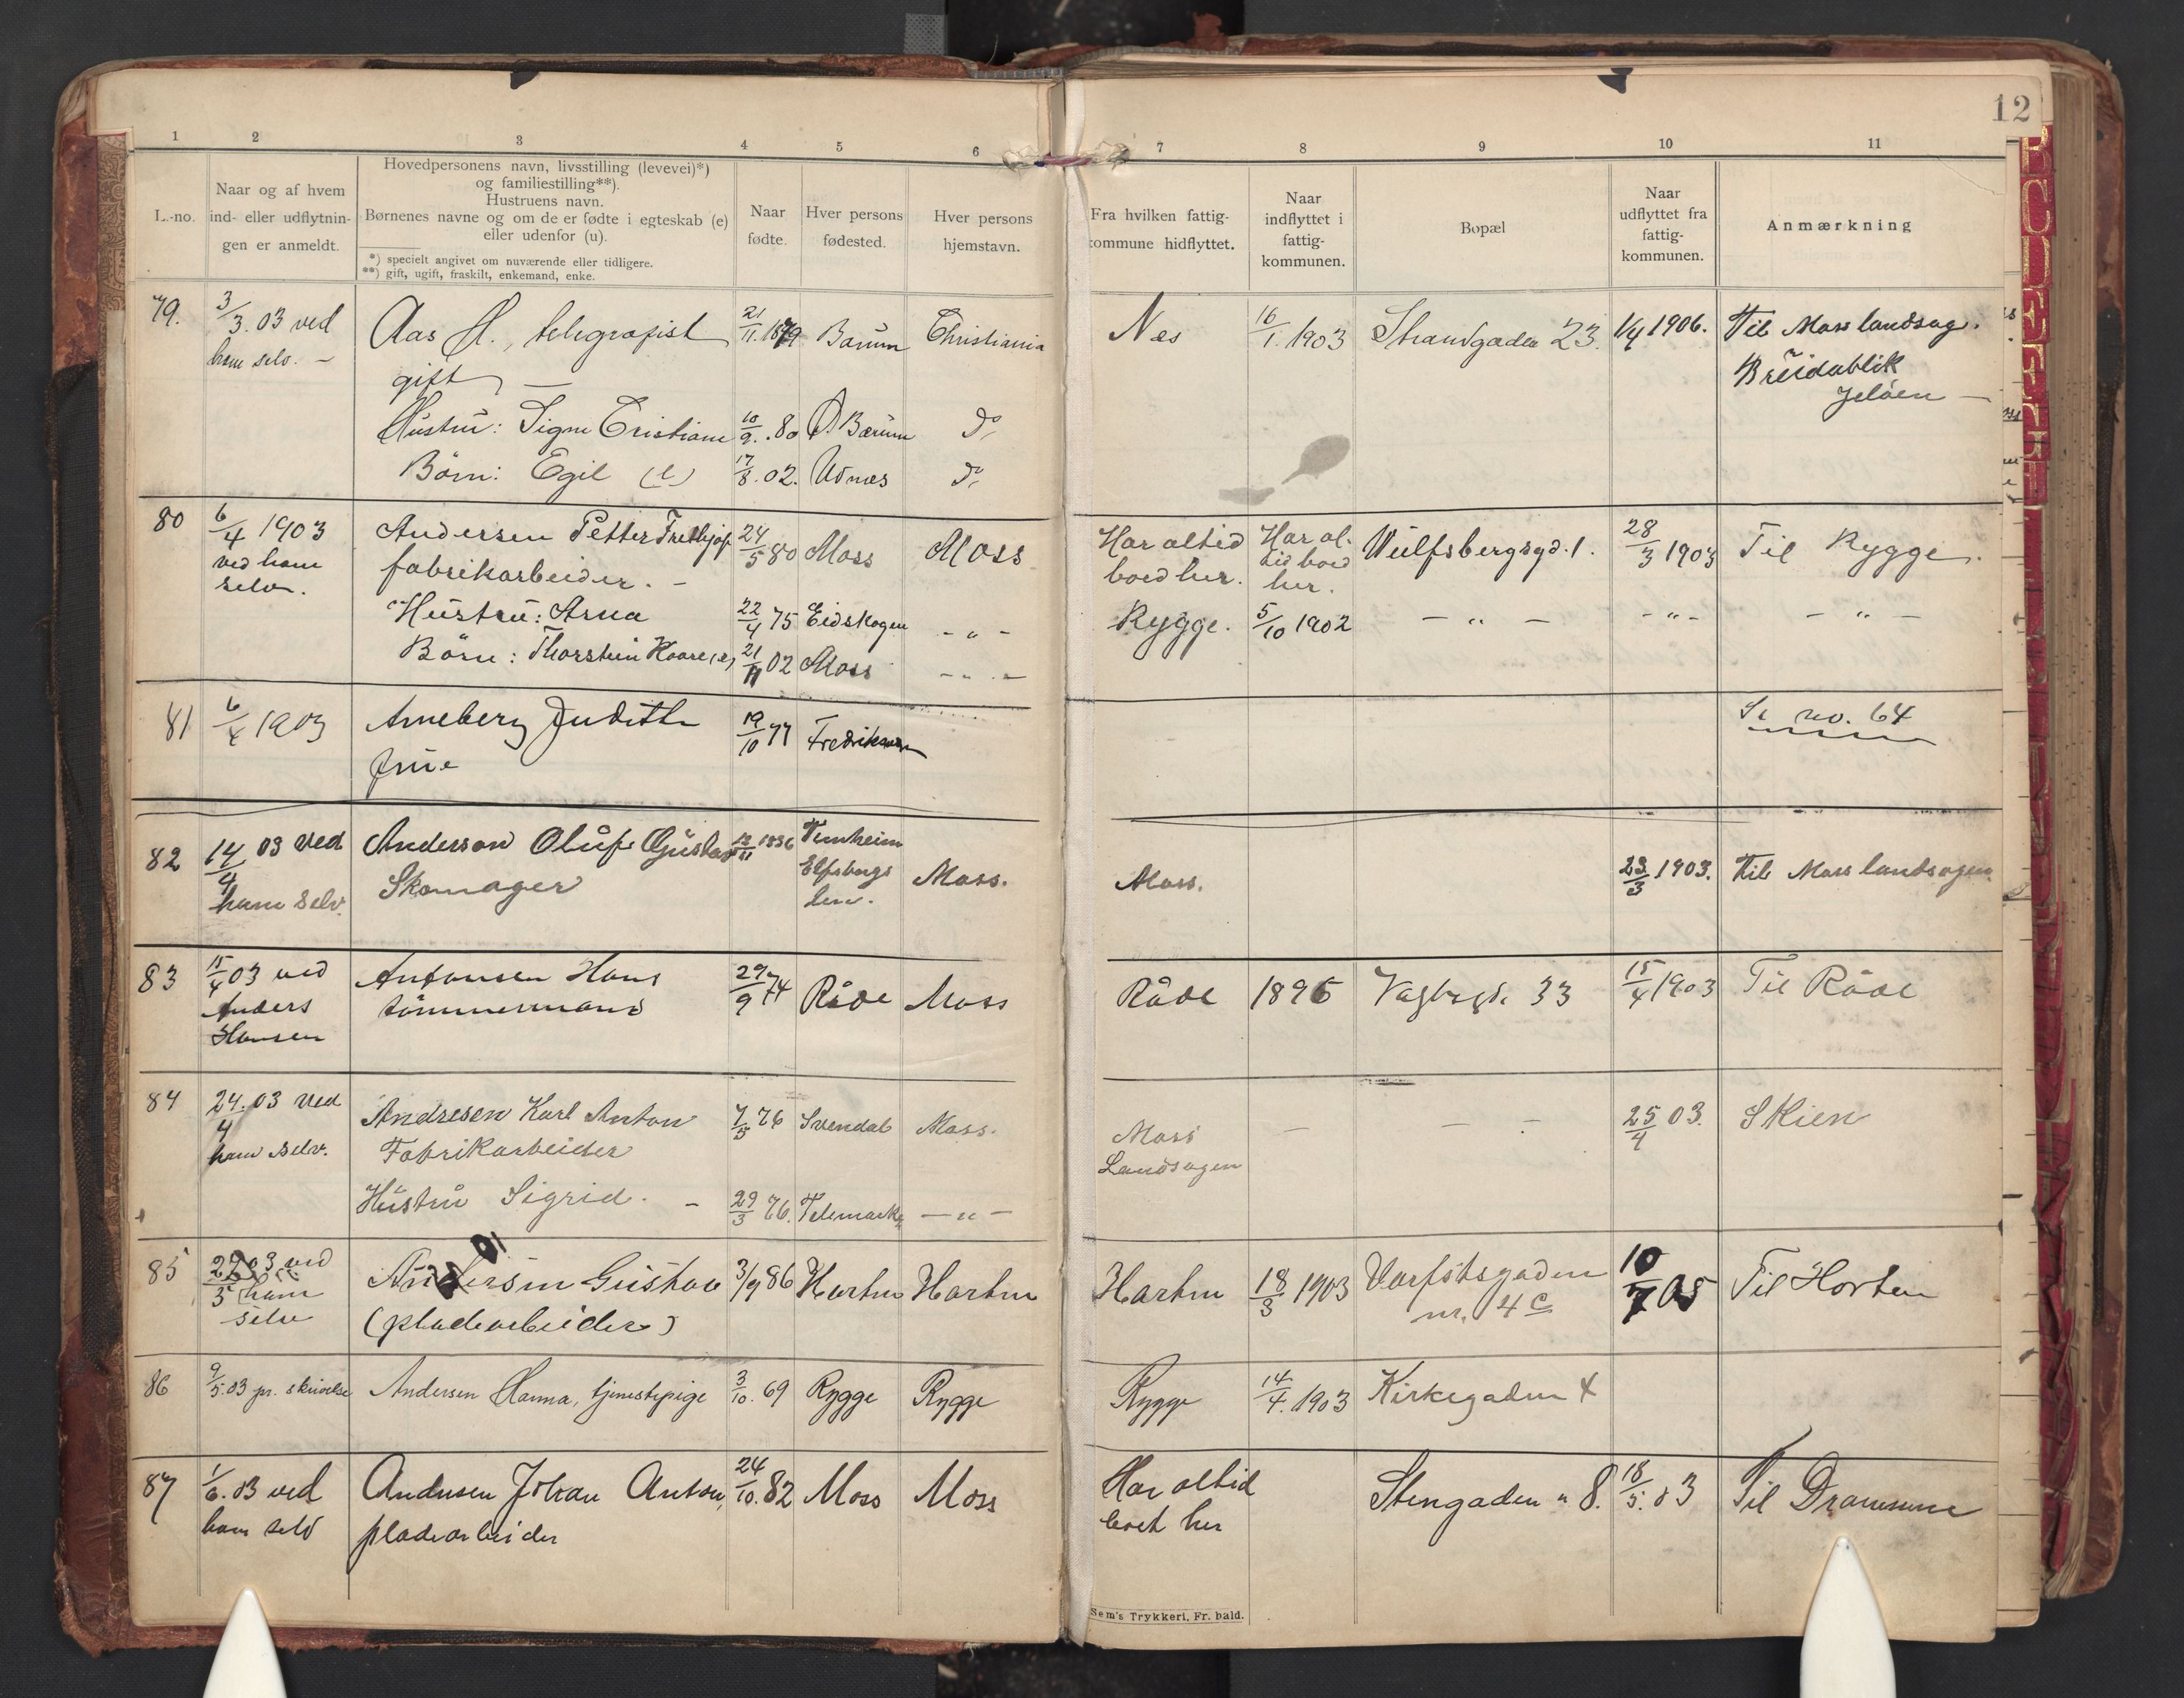 12
1 2 3 4 5 6 7 8 9 10 11
L.-no.
Naar og af hvem
ind- eller udflytnin-
gen er anmeldt.
Hovedpersonens navn, livsstilling (levevei)*)
og familiestilling**).
Hustruens navn.
Børnenes navne og om de er fødte i egteskab (e)
eller udenfor (u).
*) specielt angivet om nuværende eller tidligere.
**) gift, ugift, fraskilt, enkemand, enke.
Naar
fødte.
Hver persons
fødested.
Hver persons
hjemstavn.
Fra hvilken fattig-
kommune hidflyttet.
Naar
indflyttet i
fattig-
kommunen.
Bopæl
Naar
udflyttet fra
fattig-
kommunen.
Anmærkning
79. 3/3.03 ved Aas H., telegrafist 21/11.1879 Bærum Christiania Nes 16/1.1903 Strandgaden 23. 1/4 1906. Til Moss landsog.
ham selv. — gift — Breidablik
Jeløen —
Hustru: Signe Cristiane 10/9.80 Ø. Bærum do
Børn: Egil (e) 17/8.02. Udnes do
80 6/4 1903 Andersen Petter Frethjof 24/5 80 Moss Moss Har altid Har al- Wulfsbergsgd. 1. 28/3 1903 Til Rygge.
ved ham fabrikarbeider. — boed her. tid boed
selv. her.
Hustru: Anna 22/4 75 Eidskogen - „ - Rygge. 5/10 1902 — „ — - „ - — „ —
Børn: Thorstein Kaare (e) 21/11 02 Moss - „ -
81 6/4 1903 Arneberg Judith 19/10 77 Se no. 64
frue
82 14/4 03 ved Anderson Oluf Gustav 1836
ham selv. Skomager Elfsborgs Moss. Moss. 23/3 1903. Til Moss landsogn
len.
83 15/4 03 ved Antonsen Hans 29/9 74 Råde Moss Råde 1896 33 15/4 1903 Til Råde
Anders tömmermand
Hansen
84 24/4.03 ved Andresen Karl Anton 7/5 76 Svendal Moss. Moss — — - — 25/4 03. Skien
ham selv. Fabrikarbeider Landsogen
Hustru Sigrid. — 29/3 76. Telemarken — „ —
85 03 ved Andersen Gustav 3/9 86 Horten Horten Horten 18/3 1903 Varftsgaden 10/7 05 Til Horten
ham (pladearbeider) nr. 4 c
selv
86 9/5.03 pr. skrivelse Andersen Hanna, tjenestepige 3/10.69 Rygge Rygge Rygge 14/4.1903 Kirkegaden 4
87 1/6.03 ved Andersen Johan Anton, 24/10.82 Moss Moss Har altid Stengaden „ 8. 18/5.03 Til Drammen
ham selv pladearbeider boet her
Sem's Trykkeri, Fr. hald.